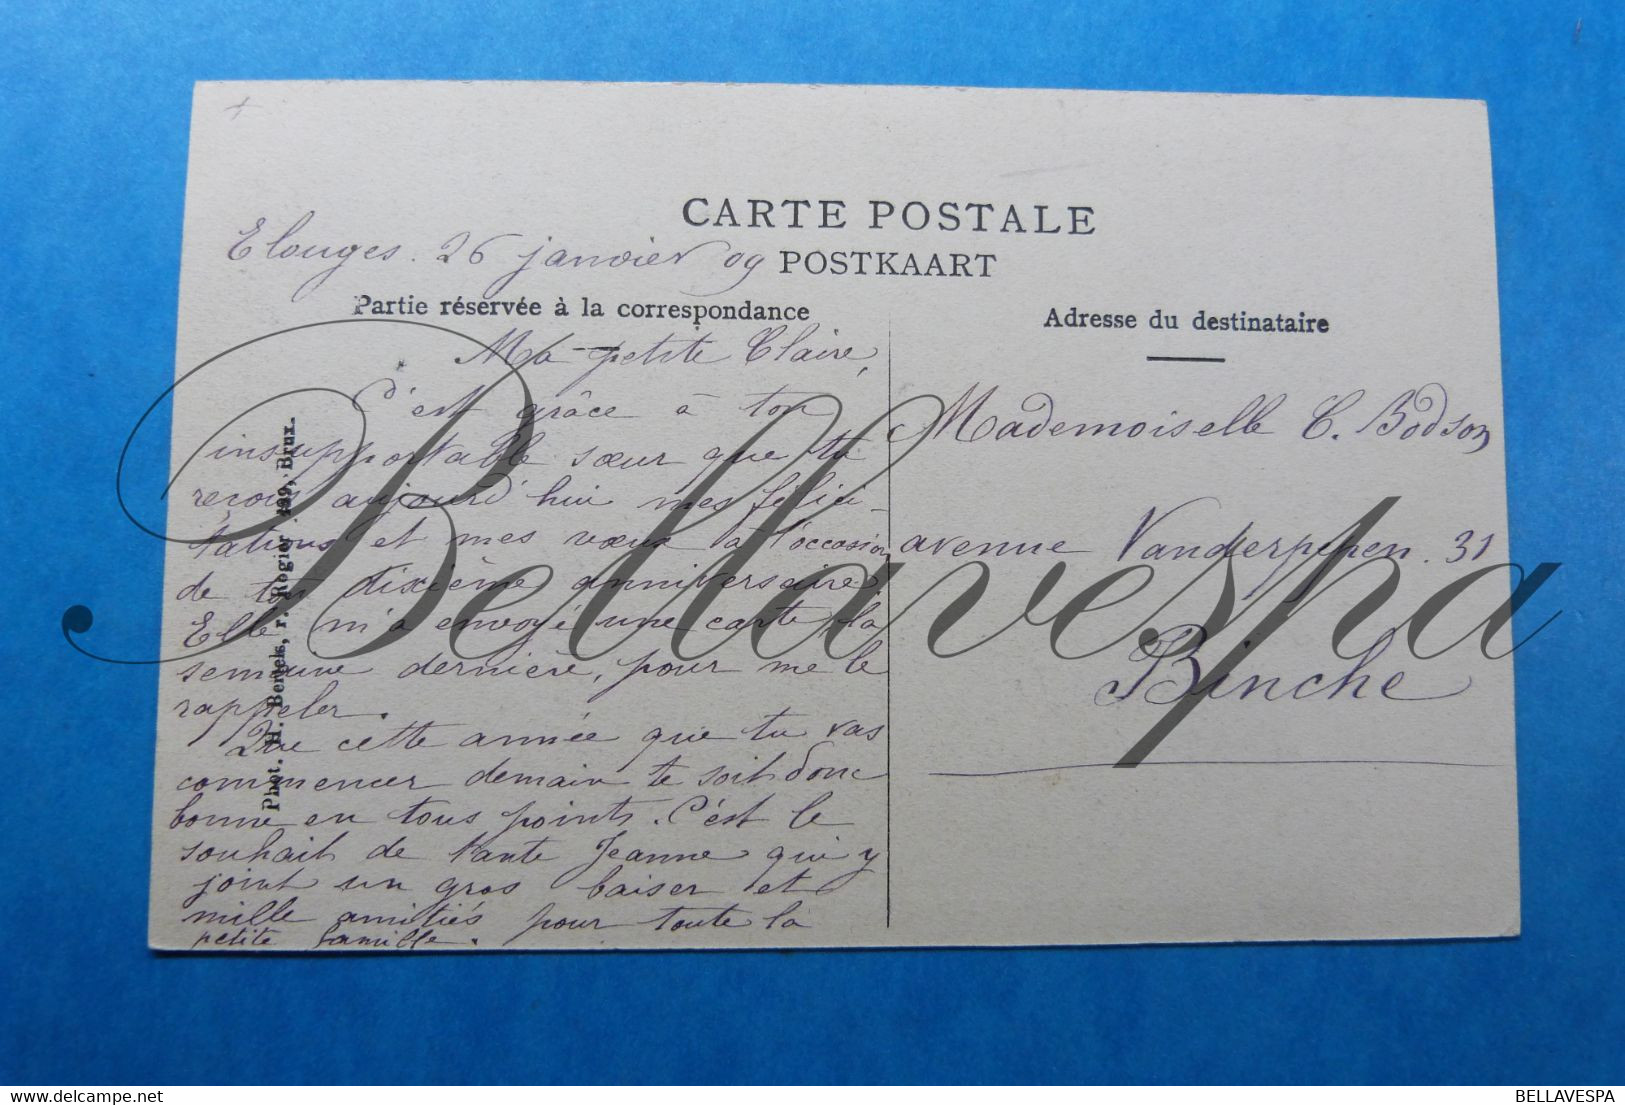 CARTE POSTALE
POSTKAART
Elouges. 26 janvier 09
Partie réservée à la correspondance
Ma petite Claire,
C'est grâce à ton
insupportable sœur que tu
reçois aujourd'hui mes félici-
tations et mes vœux à l'occasion
de ton dixième anniversaire.
Elle m'a envoyé une carte la
semaine dernière, pour me le
rappeler.
Que cette année que tu vas
commencer demain te soit donc
bonne en tous points. C'est le
souhait de tante Jeanne qui y
joint un gros baiser et
mille amitiés pour toute la
petite famille.
Phot. H. Bertels, r. Rogier 199, Brux.
Adresse du destinataire
Mademoiselle C. Bodson
avenue Vanderpepen. 31
Binche
Bellavespa
BELLAVESPA